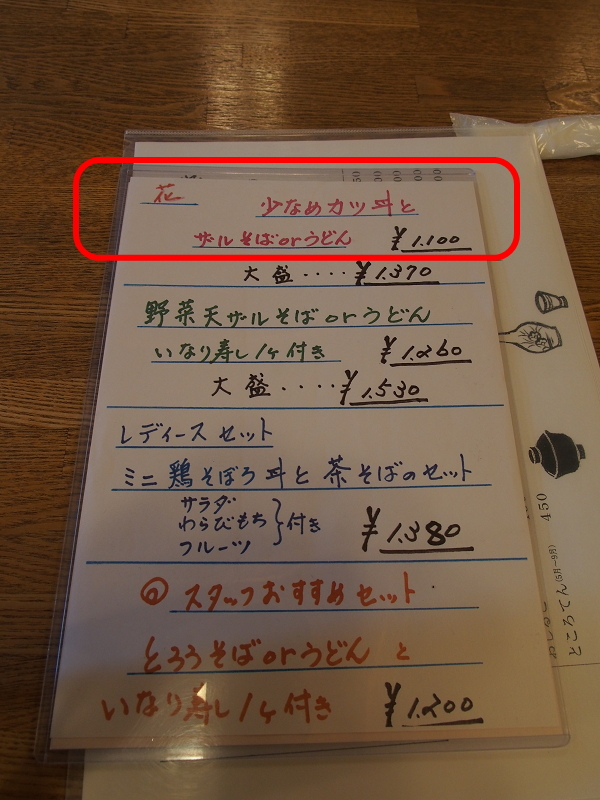 花 少なめカツ丼と
ザールそばorうどん ¥1.100
大盛････¥1.370
野菜天ザールそばorうどん
いなり寿し1ヶ付き ¥1.260
大盛････¥1.530
レディースセット
ミニ鶏そぼろ丼と茶そばのセット
サラダ
わらびもち 付き
フルーツ
¥1.380
スタッフおすすめセット
とろろそばorうどんと
いなり寿し1ヶ付き ¥1.200
450
ところてん(5月～9月)